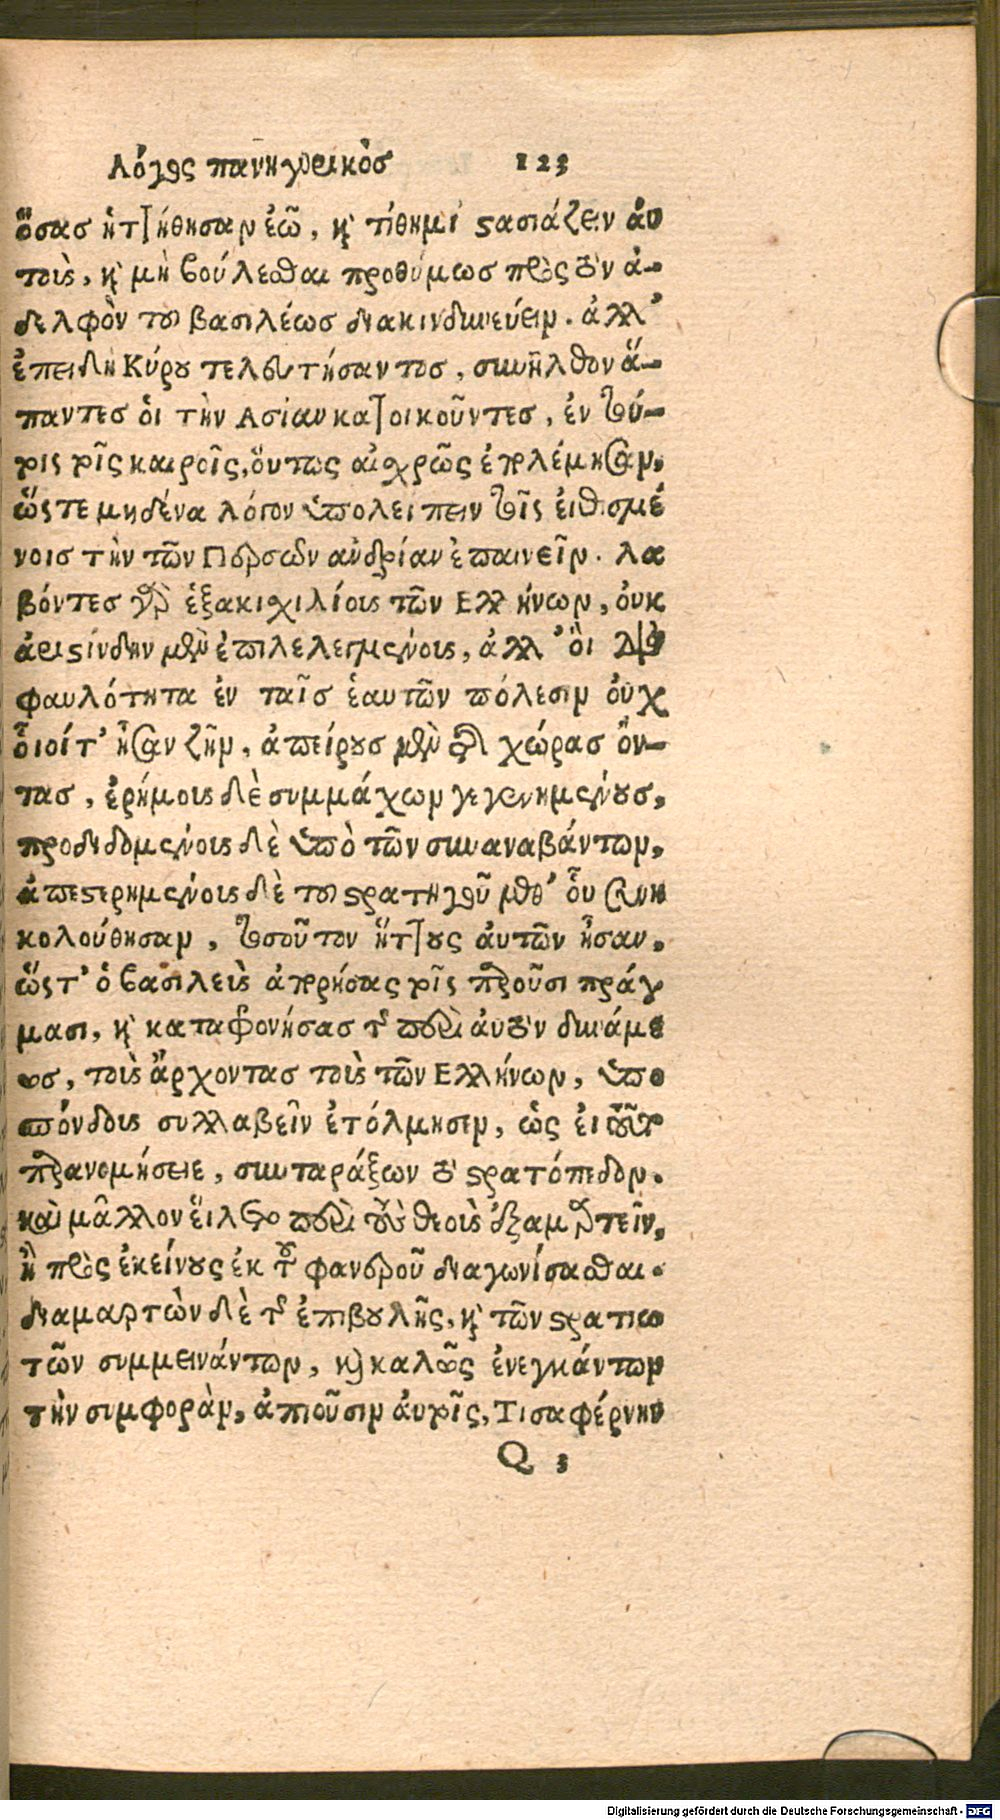 Λόγος πανηγυρικὸς 123
ὅσας ἡττήθησαν ἐῶ, καὶ τίθημι στασιάζειν αὐ
τοὺς, καὶ μὴ βούλεσθαι προθύμως πρὸς τὸν ἀ-
δελφὸν τοῦ βασιλέως διακινδυνεύειν. ἀλλ'
ἐπειδὴ Κύρου τελευτήσαντος, συνῆλθον ἅ-
παντες οἱ τὴν Ασίαν κατοικοῦντες, ἐν τού-
τοις τοῖς καιροῖς, ὅυτως αἰσχρῶς ἐπολέμησαν,
ὥστε μηδένα λόγον ὑπολείπειν τοῖς ἐιθισμέ
νοις τὴν τῶν Περσῶν ανδρίαν ἐπαινεῖν. λα
βόντες γὰρ ἑξακιχιλίους τῶν Ελλήνων, ὀυκ
ἀριστίνδην μὲν ἐπιλελεγμένους, ἀλλ' ὃι διὰ
φαυλότητα ἐν ταῖς ἑαυτῶν πόλεσιν ὀυχ
ὁῖοίτ' ἦσαν ζῆν, ἀπείρους μὲν τῆς χώρας ὄν-
τας, ἐρήμους δὲ συμμάχων γεγενημένους,
προδεδομένους δὲ ὑπὸ τῶν συναναβάντων,
ἀπεστερημένους δὲ τοῦ στρατηγοῦ μεθ' ὁῦ συνη
κολούθησαν, τοσοῦτον ἥττους ἀυτῶν ἦσαν,
ὥστ' ὁ βασιλεὺς ἀπορήσας τοῖς παροῦσι πράγ
μασι, καὶ καταφρονήσας τῆς περὶ ἀυτὸν δυνάμε
ως, τοὺς ἄρχοντας τοὺς τῶν Ελλήνων, ὑπο
σπόνδους συλλαβεῖν ἐτόλμησεν, ὡς ἐι τοῦτο
παρανομήσειε, συνταράξων τὸ στρατόπεδον.
καὶ μᾶλλον ἕιλετο περὶ τοὺς θεοὺς ἐξαμαρτεῖν,
ἢ πρὸς ἐκείνους ἐκ τοῦ φανεροῦ διαγωνίσασθαι.
διαμαρτὼν δὲ τῆς ἐπιβουλῆς, καὶ τῶν στρατιω
τῶν συμμεινάντων, καὶ καλῶς ἐνεγκάντων
τὴν συμφορὰν, ἀπιοῦσιν ἀυτοῖς, Τισαφέρνην
Q 3
Digitalisierung gefördert durch die Deutsche Forschungsgemeinschaft - DFG